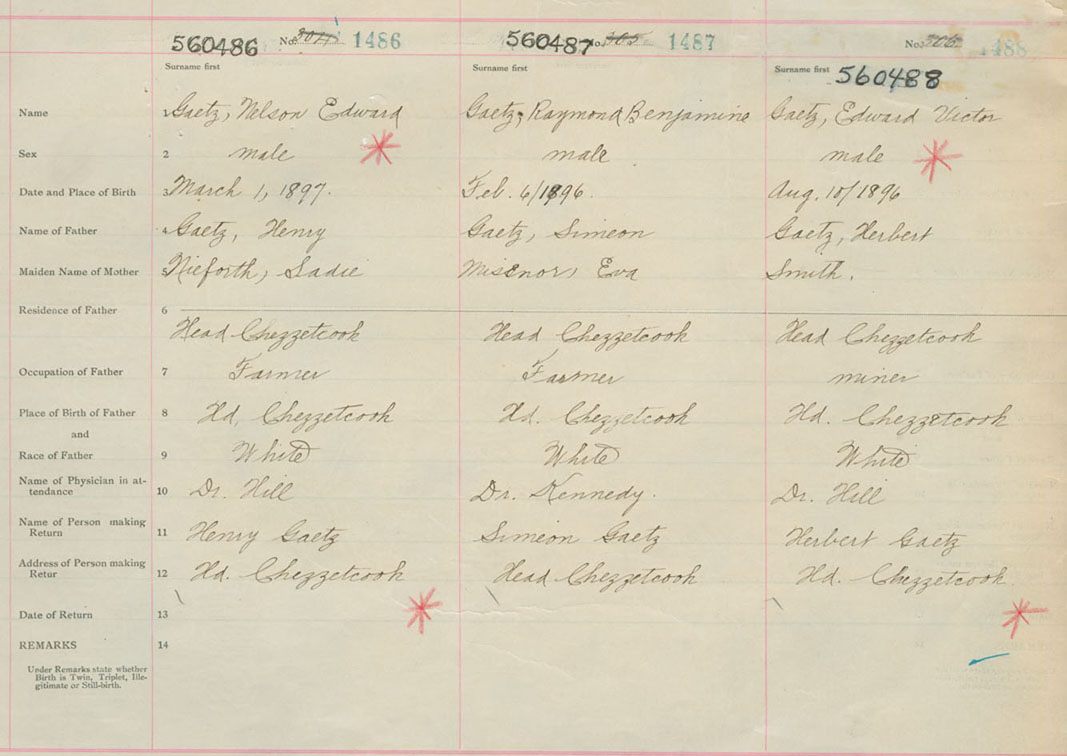 560486 No. 1486 560487 No. 305 1487 No. 306 1488
Surname first Surname first Surname first 560488
Name 1 Gaetz, Nelson Edward Gaetz, Raymond Benjamine Gaetz, Edward Victor
Sex 2 male male male
Date and Place of Birth 3 March 1, 1897. Feb. 6/1896. Aug. 10/1896
Name of Father 4 Gaetz, Henry Gaetz, Simeon Gaetz, Herbert
Maiden Name of Mother 5 Nieforth, Sadie Misenor, Eva Smith.
Residence of Father 6
Head Chezzetcook Head Chezzetcook Head Chezzetcook
Occupation of Father 7 Farmer Farmer miner
Place of Birth of Father 8 Hd. Chezzetcook Hd. Chezzetcook Hd. Chezzetcook
and
Race of Father 9 White White White
Name of Physician in at-
tendance 10 Dr. Hill Dr. Kennedy. Dr. Hill
Name of Person making
Return 11 Henry Gaetz Simeon Gaetz Herbert Gaetz
Address of Person making
Retur 12 Hd. Chezzetcook Head Chezzetcook Hd. Chezzetcook
Date of Return 13
REMARKS 14
Under Remarks state whether
Birth is Twin, Triplet, Ille-
gitimate or Still-birth.